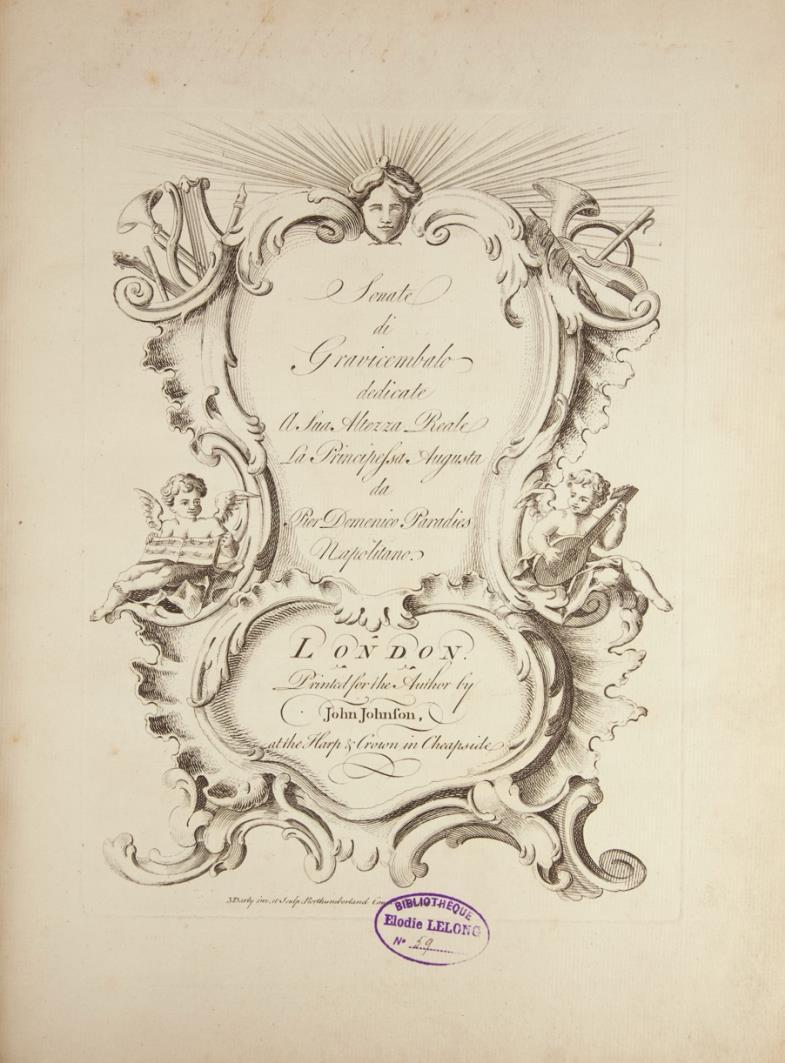 Sonate
di
Gravicembalo
dedicate
A Sua Altezza Reale
La Principeſsa Augusta
da
Pier Domenico Paradies
Napolitano.
LONDON.
Printed for the Author by
John Johnſon,
at the Harp & Crown in Cheapside
MDarly inv. et Sculp. Northumberland
BIBLIOTHÈQUE
Elodie LELONG
N° 59